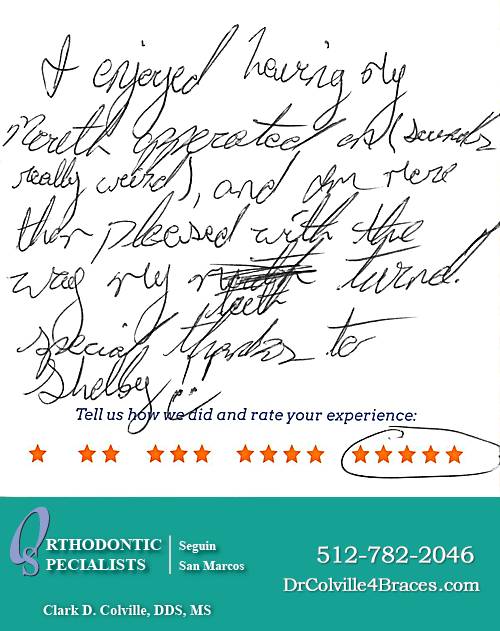 I enjoyed having my
mouth opperated on (sounds
really weird), and am more
than pleased with the
way my teeth turnd.
special thanks to
Shelby!!
Tell us how we did and rate your experience:
ORTHODONTIC
SPECIALISTS
Seguin
San Marcos
512-782-2046
DrColville4Braces.com
Clark D. Colville, DDS, MS